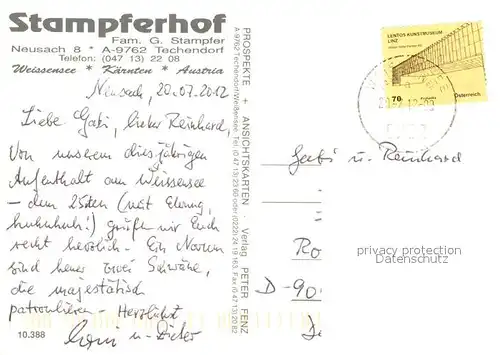 Stampferhof
Fam. G. Stampfer
Neusach 8 * A-9762 Techendorf
Telefon: (047 13) 22 08
Weissensee * Kärnten * Austria
Neusach, 20.07.2012
Liebe Gabi, lieber Reinhard,
Von unserem diesjährigen
Aufenthalt am Weissensee
– dem 25sten (mit Ehrung
huhuhuh!) grüßen wir Euch
recht herzlich. Ein Novum
sind heuer zwei Schwäne,
die majestätisch
patroullieren – Herzlichst
u.
10.388
PROSPEKTE + ANSICHTSKARTEN · Verlag PETER FENZ
LENTOS KUNSTMUSEUM
LINZ
70
Österreich
Gabi u. Reinhard
Ro
D-90
privacy protection
Datenschutz